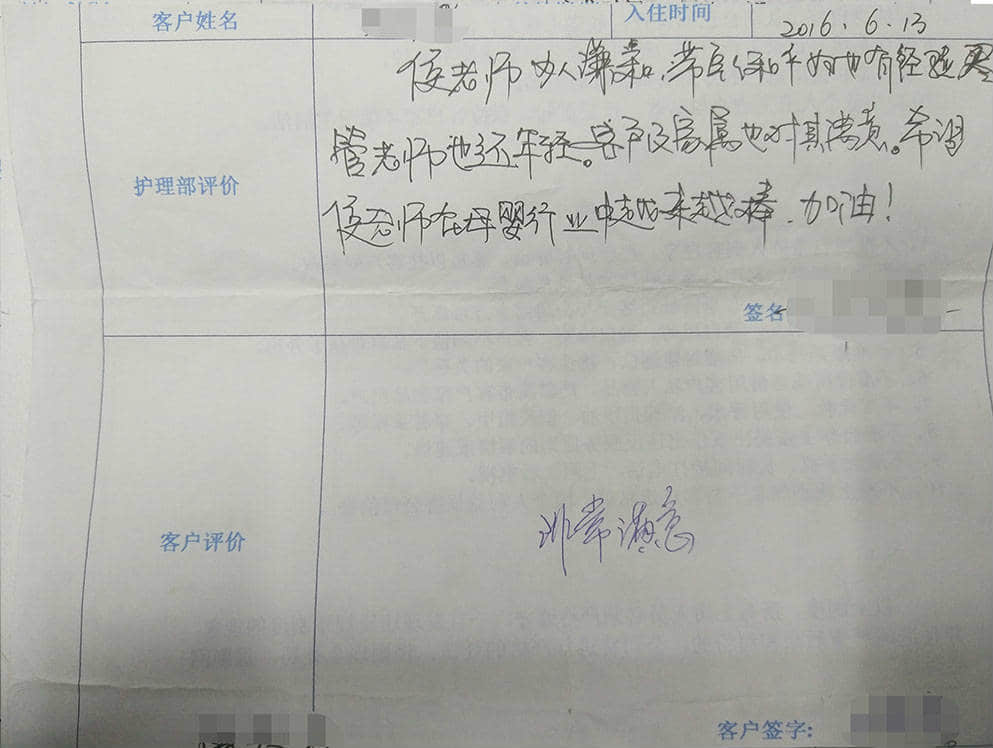 客户姓名 入住时间 2016.6.13
老师为人谦和,带宝宝和产妇也有经验
护理部评价
管老师也还年轻。客户及家属也对其满意。希望
老师在母婴行业中越来越棒.加油!
签名
非常满意
客户评价
客户签字: